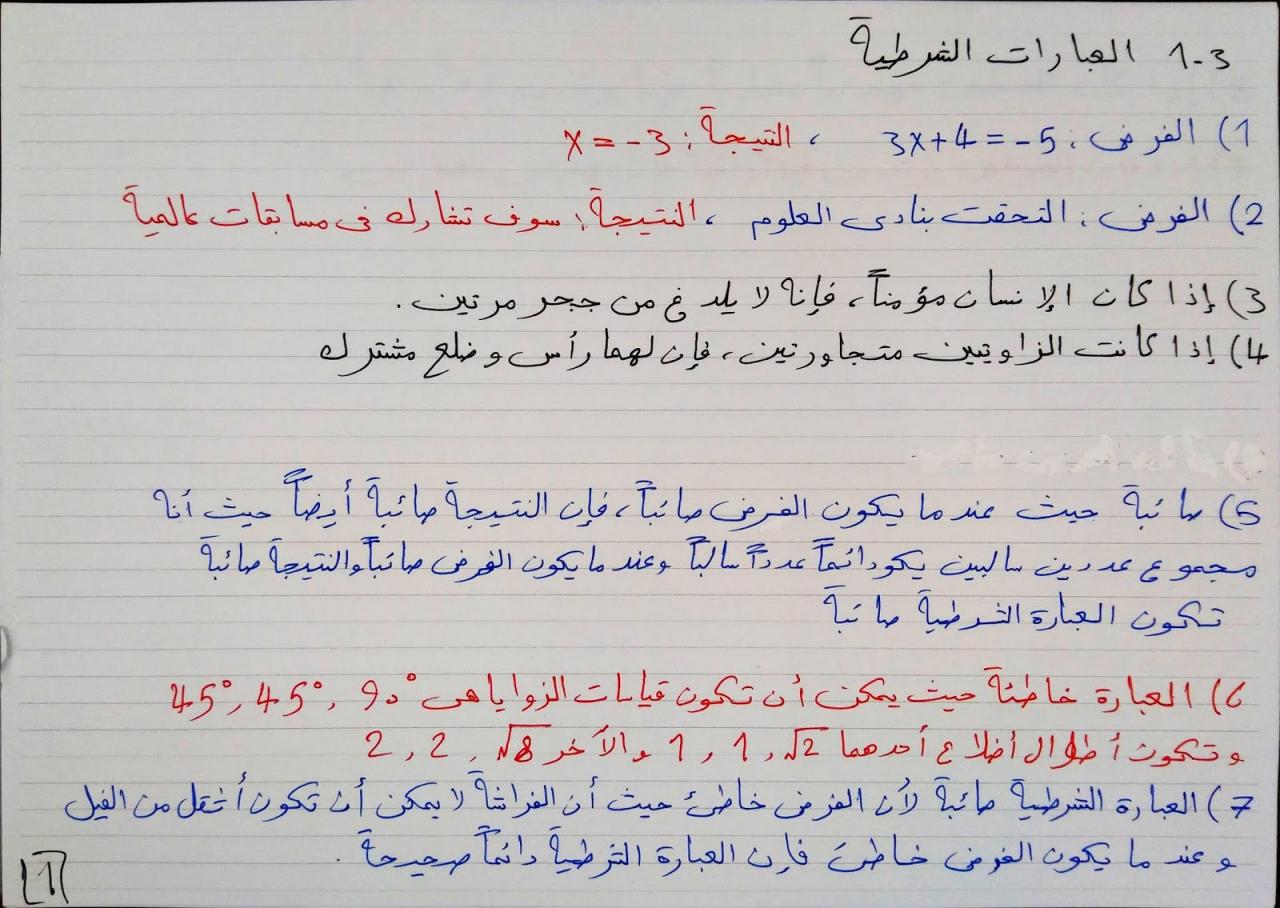 1-3 العبارات الشرطية
1) الفرض: 3x+4=-5 ، النتيجة: x=-3
2) الفرض: التحقت بنادى العلوم ، النتيجة: سوف تشارك فى مسابقات عالمية
3) إذا كان الإنسان مؤمناً، فإنه لا يلدغ من جحر مرتين.
4) إذا كانت الزاويتين متجاورتين، فإن لهما رأس وضلع مشترك
5) صائبة حيث عندما يكون الفرض صائباً، فإن النتيجة صائبة أيضاً حيث أنه
مجموع عددين سالبين يكو دائماً عدداً سالباً وعندما يكون الفرض صائباً والنتيجة صائبة
تكون العبارة الشرطية صائبة
6) العبارة خاطئة حيث يمكن أن تكون قياسات الزوايا هى 90°, 45°, 45°
وتكون أطوال أضلاع أحدهما √2, 1, 1 والآخر √8, 2, 2
7) العبارة الشرطية صائبة لأن الفرض خاطئ حيث أن الفراشة لا يمكن أن تكون أثقل من الفيل
وعندما يكون الفرض خاطئ فإن العبارة الشرطية دائماً صحيحة.
1